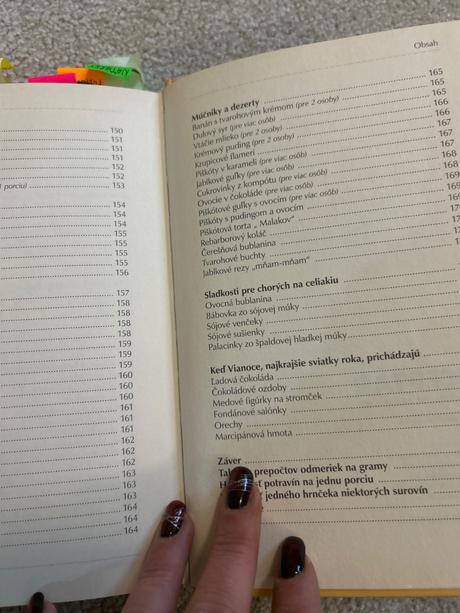 150
151
151
151
152
152
porciu) 153
154
154
154
155
155
155
156
157
158
158
158
158
159
159
159
160
160
160
161
161
161
162
162
163
163
163
163
164
164
164
Obsah
Múčniky a dezerty 165
Banán s tvarohovým krémom (pre 2 osoby) 165
Dulový syr (pre viac osôb) 165
Vtáčie mlieko (pre 2 osoby) 166
Krémový puding (pre 2 osoby) 166
Krupicové flameri 167
Piškóty v karameli (pre viac osôb) 167
Jablkové guľky (pre viac osôb) 167
Cukrovinky z kompótu (pre viac osôb) 168
Ovocie v čokoláde (pre viac osôb) 168
Piškótové guľky s ovocím (pre viac osôb) 169
Piškóty s pudingom a ovocím
Piškótová torta „ Malakov"
Rebarborový koláč
Čerešňová bublanina
Tvarohové buchty
Jablkové rezy „mňam-mňam"
Sladkosti pre chorých na celiakiu
Ovocná bublanina
Bábovka zo sójovej múky
Sójové venčeky
Sójové sušienky
Palacinky zo špaldovej hladkej múky
Keď Vianoce, najkrajšie sviatky roka, prichádzajú
Ľadová čokoláda
Čokoládové ozdoby
Medové figúrky na stromček
Fondánové salónky
Orechy
Marcipánová hmota
Záver
prepočtov odmeriek na gramy
potravín na jednu porciu
jedného hrnčeka niektorých surovín